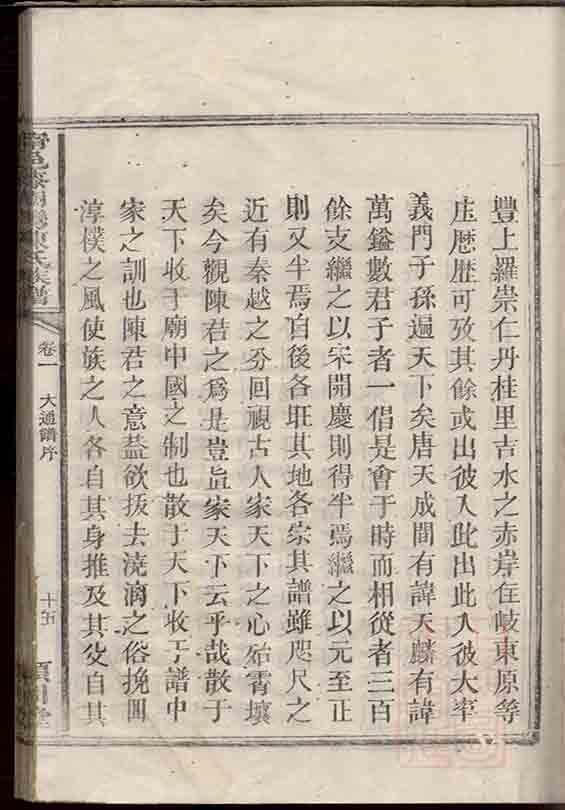 豐上羅崇仁丹桂里吉水之赤岸在岐東原等
庄歷歷可攷其餘或出彼入此出此入彼大率
義門子孫遍天下矣唐天成間有諱天麟有諱
萬鎰數君子者一倡是會于時而相從者三百
餘支繼之以宋開慶則得半焉繼之以元至正
則又半焉自後各班其地各宗其譜雖咫尺之
近有秦越之分回視古人家天下之心殆霄壤
矣今觀陳君之為是豈眞家天下云乎哉散于
天下收于廟中國之制也散于天下收于譜中
家之訓也陳君之意葢欲拔去澆漓之俗挽回
淳樸之風使族之人各自其身推及其父自其
陳氏族譜
卷一
大通譜序
十五
堂